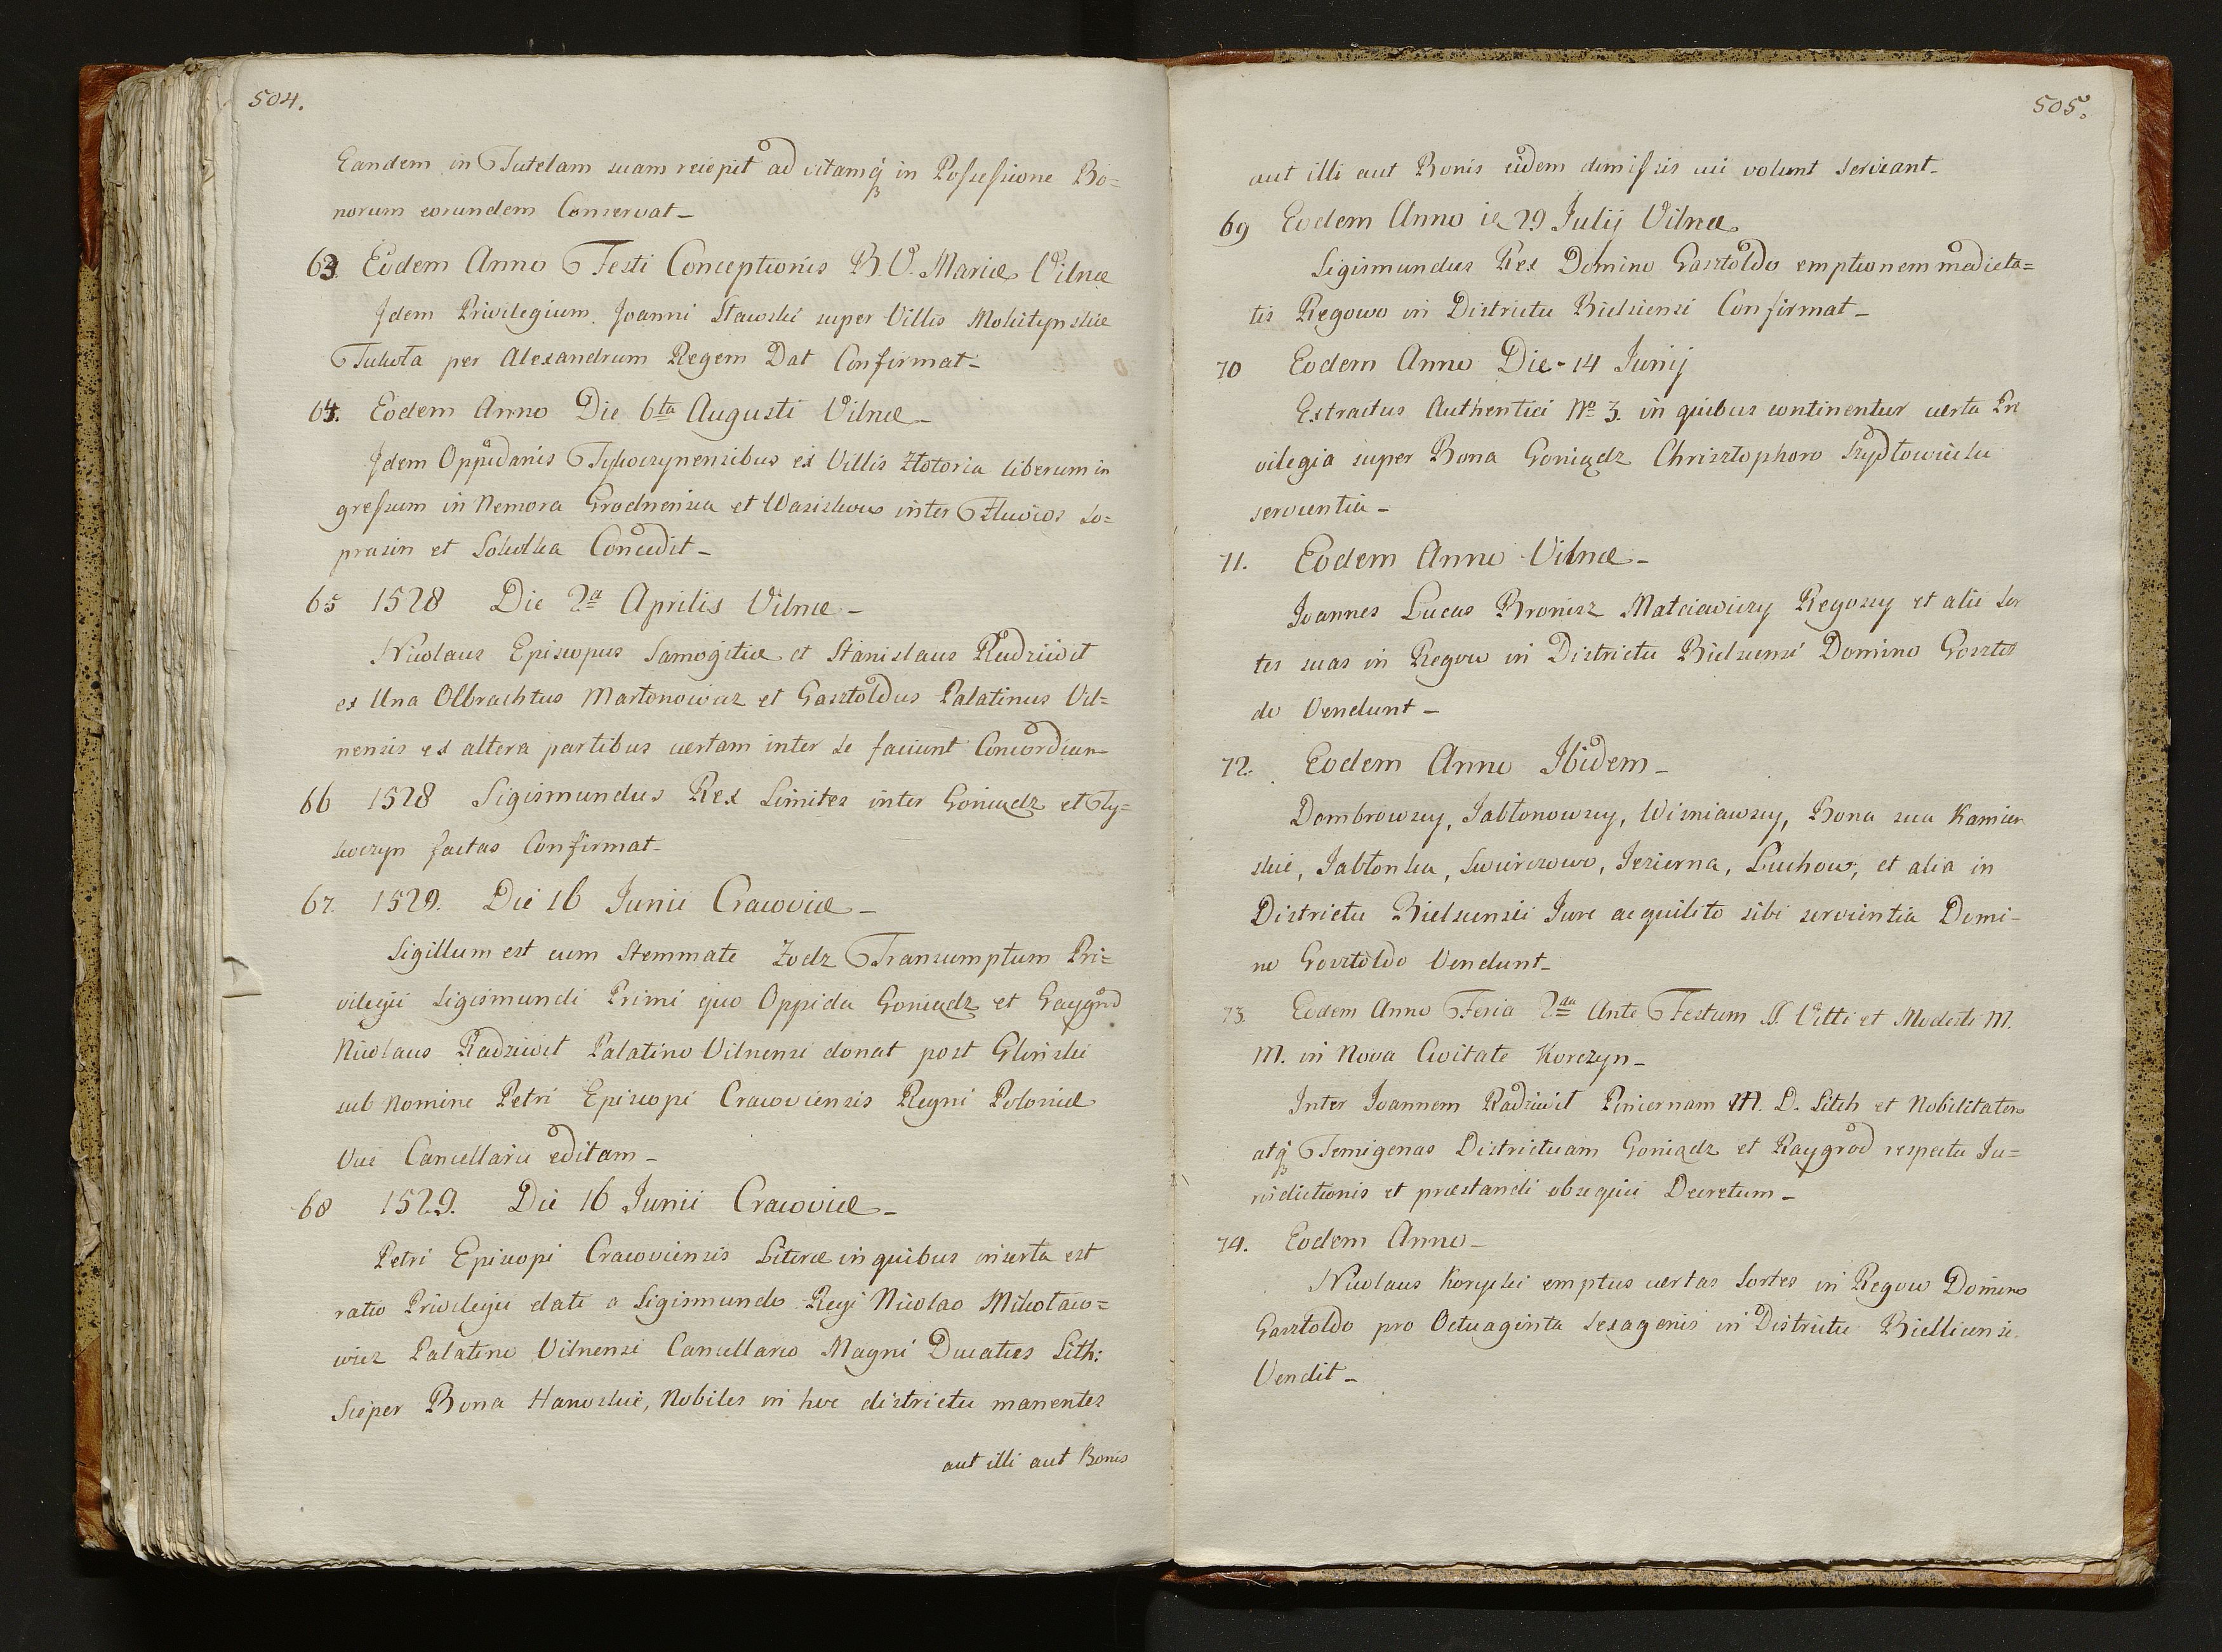 504.
Eandem in Tutelam suam recepit ad vitamq̃ in Possessione Bo=
norum eorundem Conservat_
63. Eodem Anno Festi Conceptionis B.V. Mariæ Vilnæ
Idem Privilegium Joanni Stawski super Villis Mokitynskie
Tukota per Alexandrum Regem Dat Confirmat_
64. Eodem Anno Die 6ta Augusti Vilnæ_
Idem Oppidanis Tykoczynensibus ex Villis Złotoria liberum in
gressum in Nemora Grodnensia et Wasiskowo inter Fluvios So=
prasin et Sokołka Concedit_
65 1528 Die 2a Aprilis Vilnæ_
Nicolaus Episcopus Samogitiæ et Stanislaus Radziwił
ex Una Olbrachtus Martonowicz et Gasztoldus Palatinus Vil=
nensis ex altera partibus certam inter se faciunt Concordiam
66 1528 Sigismundus Rex Limites inter Goniądz et Ty=
koczyn factas Confirmat_
67. 1529. Die 16 Junii Cracoviæ_
Sigillum est cum Stemmate Łodz Transumptum Pri=
vilegii Sigismundi Primi quo Oppida Goniądz et Raygrod
Nicolaus Radziwił Palatino Vilnensi donat post Glinski
sub Nomine Petri Episcopi Cracoviensis Regni Poloniæ
Vice Cancellarii editam_
68 1529. Die 16 Junii Cracoviæ_
Petri Episcopi Cracoviensis Literæ in quibus inserta est
ratio Privilegii dati a Sigismundo Regi Nicolao Mikołaio=
wicz Palatino Vilnensi Cancellario Magni Ducatus Lith:
Super Bona Hanoskie, Nobiles in hoc districtu manentes
aut illi aut Bonis
505.
aut illi aut Bonis eidem dimissis cui volunt serviant_
69 Eodem Anno ie 29 Julij Vilnæ
Sigismundus Rex Domino Gasztoldo emptionem medieta=
tis Regowo in Districtu Bielsiensi Confirmat_
70 Eodem Anno Die-14 Junij
Extractus Authentici No 3. in quibus continentur certa Pri
vilegia super Bona Goniądz Chrisztophoro Szydłowiecki
servientia_
71. Eodem Anno Vilnæ_
Joannes Lucas Bronisz Mateiawiczy Regowcy et alii Sor
tes suas in Regow in Districtu Bielsensi Domino Gosztol
do Vendunt_
72. Eodem Anno Ibidem_
Dombrowscy, Jabłonowscy, Wisniawscy, Bona sua Kamien
skie, Jabłonka, Swierczowo, Jezierna, Luchow, et alia in
Districtu Bielsensii Jure acquisito sibi servientia Domi-
no Gosztoldo Vendunt_
73. Eodem Anno Feria 2da Ante Festum SS. Vitti et Modesti M.
M. in Nova Civitate Korczyn_
Inter Joannem Radziwił Pincernam M. D. Lith et Nobilitatem
atq̃ Temigenas Districtuam Goniądz et Raygrod respectu Ju=
risdictionis et præstandi obsequii Decretum_
74. Eodem Anno_
Nicolaus Korycki emptus certas Sortes in Regow Domino
Gasztoldo pro Octuaginta Sexagenis in Districtu Bielliensi
Vendit_